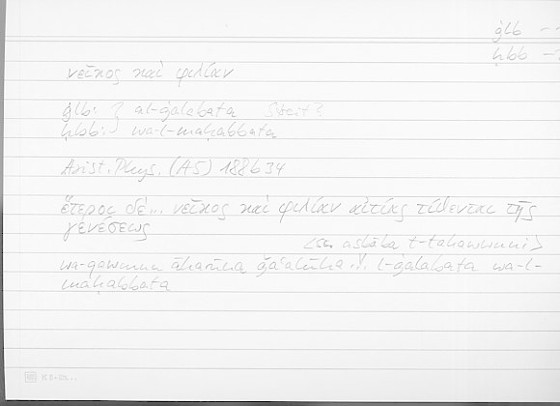 ġlb --
ḥbb --
νεῖκος καὶ φιλίαν
ġlb: ? al-ġalabata Streit?
ḥbb: wa-l-maḥabbata
Arist. Phys. (A5) 188b34
ἕτερος δέ... νεῖκος καὶ φιλίαν αἰτίας τίθενται τῆς
γενέσεως
<sc. asbāba t-takawwuni>
wa-qawmun āḫarūna ǧaʿalūhā... l-ġalabata wa-l-
maḥabbata